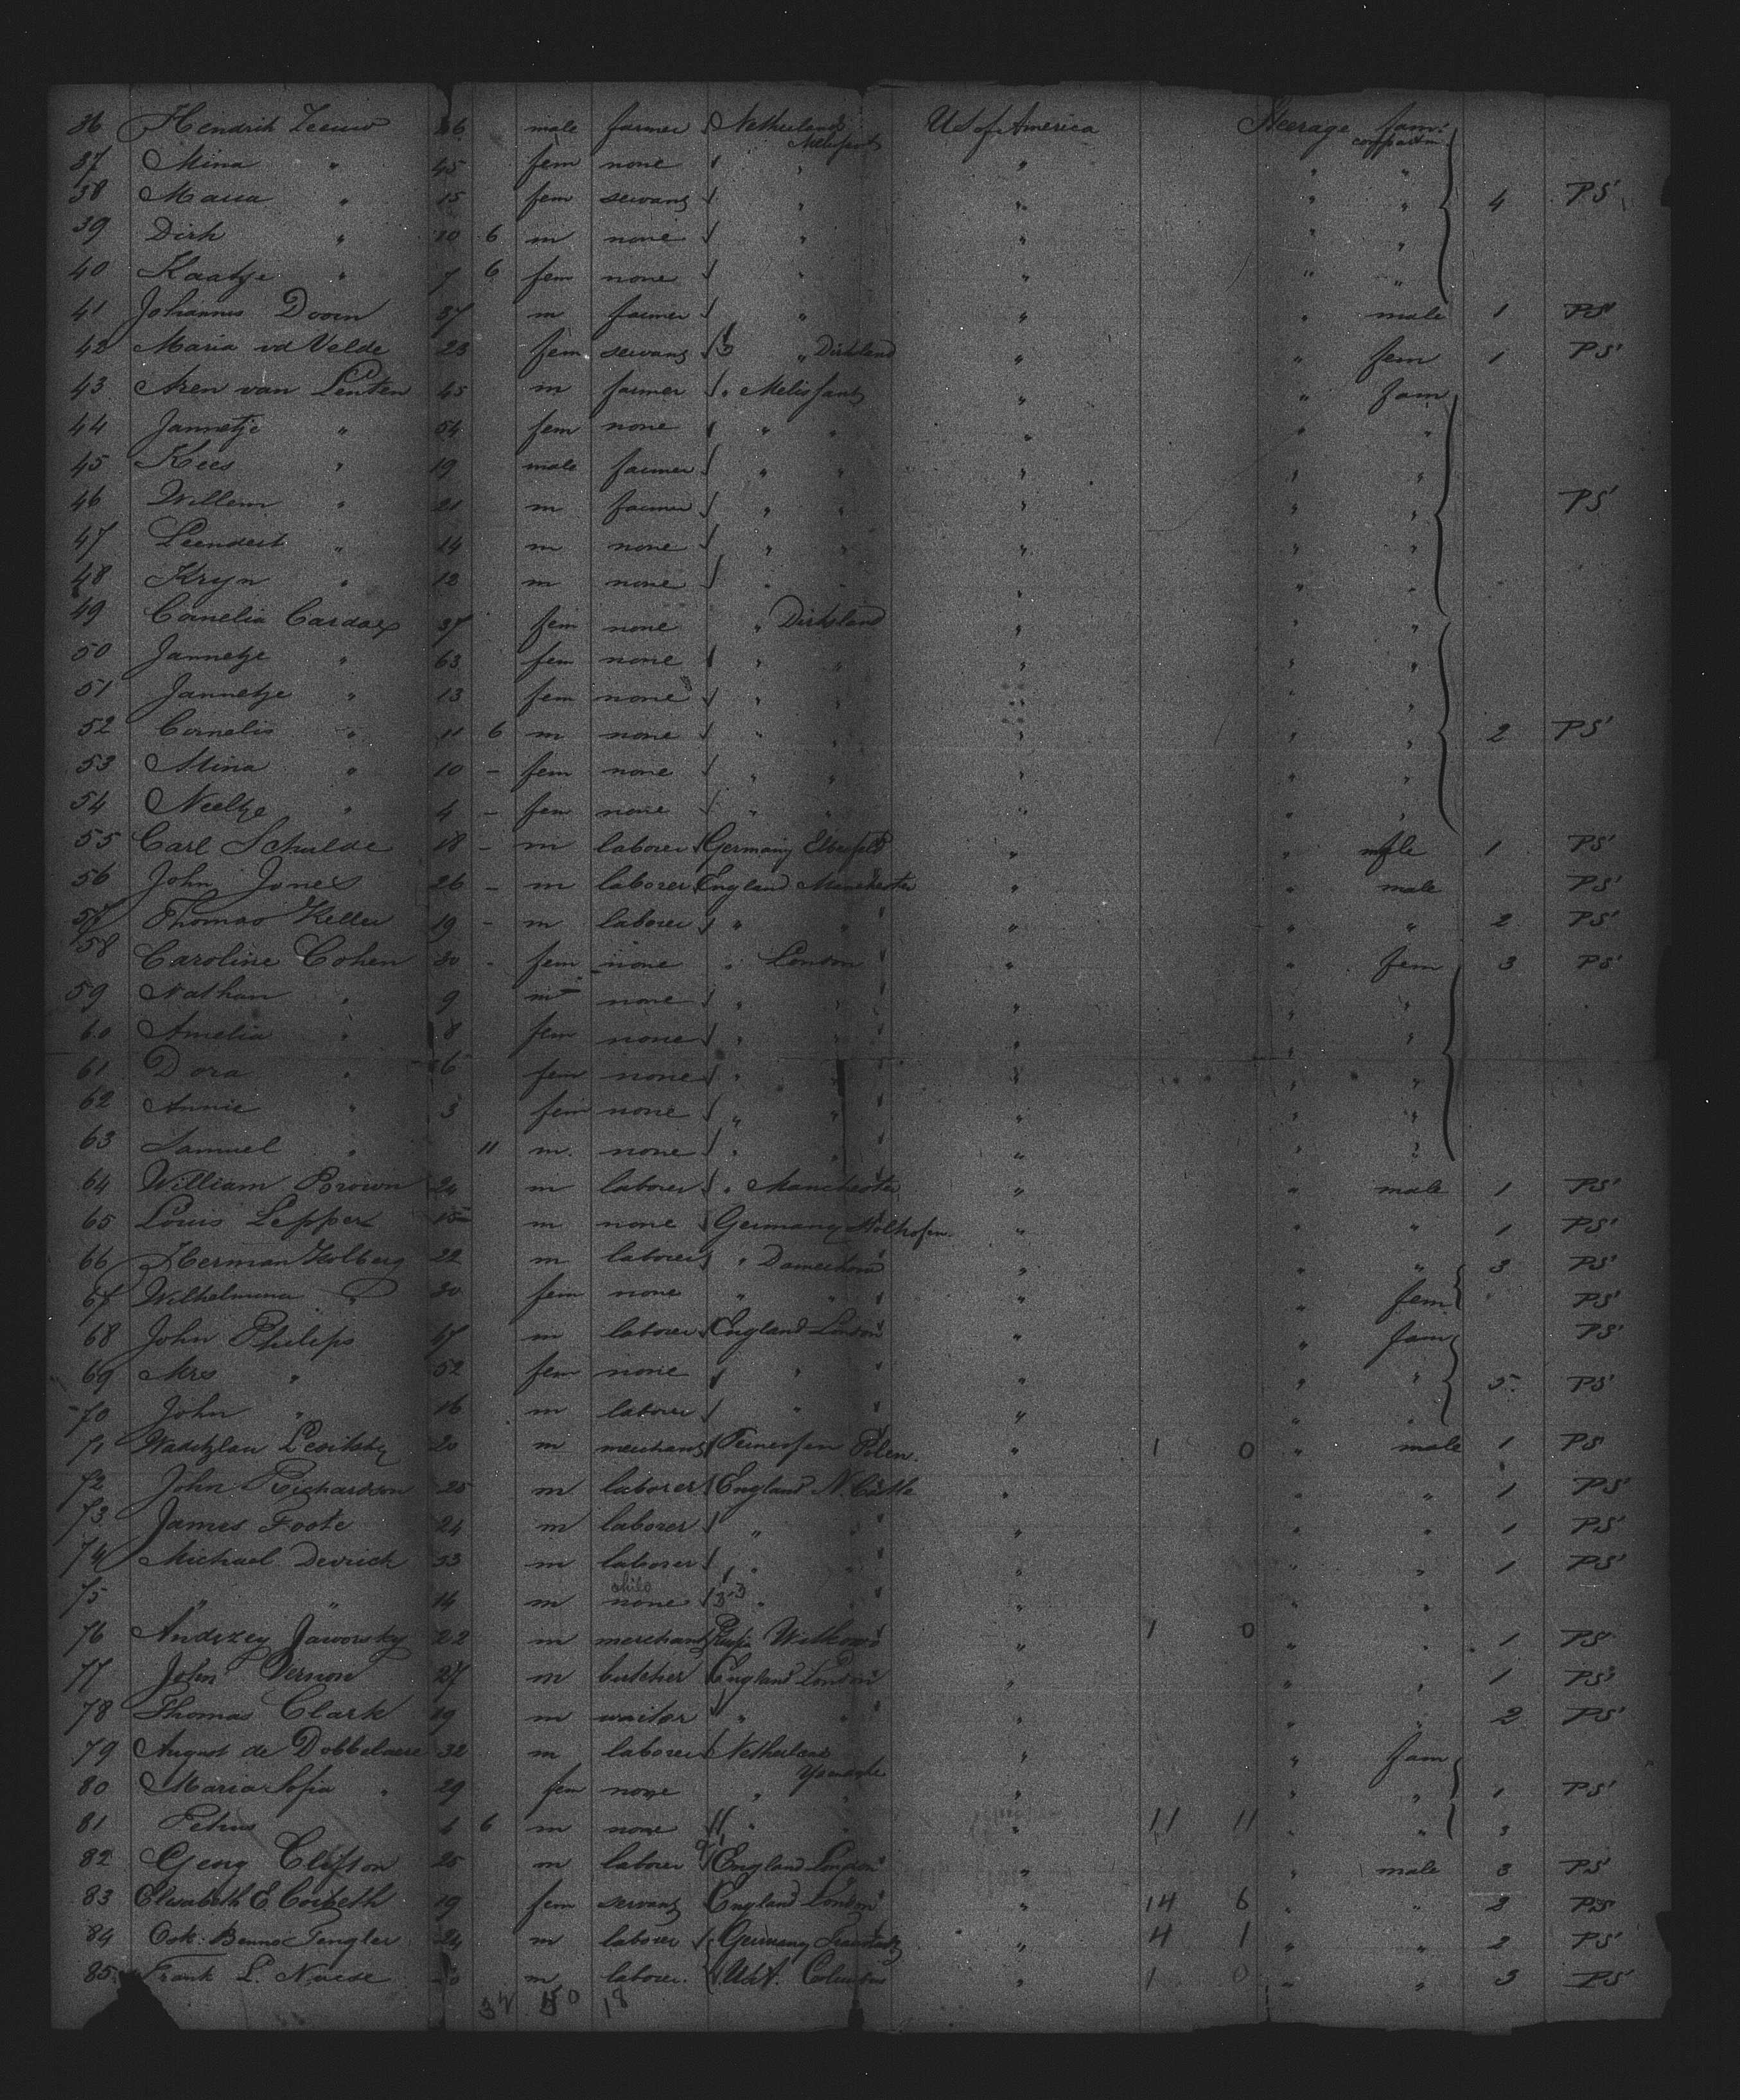 36 Hendrik Zeeuw 46 male farmer Netherland Melisfant US of America Steerage fam: compartm
37 Mina " 45 fem none " " " "
38 Maria " 15 fem servant " " " " 4 PS
39 Dirk " 10 6 m none " " " "
40 Kaatje " 7 6 fem none " " " "
41 Johannes Doorn 37 m farmer " " " male 1 PS
42 Maria vd Velde 23 fem servant " Dirksland " " fem 1 PS
43 Aren van Lenten 45 m farmer " Melisfant " " fam
44 Jannetje " 54 fem none " " " " "
45 Kees " 19 male farmer " " " " "
46 Willem " 21 m farmer " " " " " PS
47 Leendert " 14 m none " " " " "
48 Kryn " 12 m none " " " " "
49 Cornelia Cardax 37 fem none " Dirksland " " "
50 Jannetje " 63 fem none " " " " "
51 Jannetje " 13 fem none " " " " "
52 Cornelis " 11 6 m none " " " " " 2 PS
53 Mina " 10 - fem none " " " " "
54 Neeltje " 4 - fem none " " " " "
55 Carl Schulde 18 - m laborer Germany Elberfeld " " male 1 PS
56 John Jones 26 - m laborer England Manchester " " male PS
57 Thomas Keller 19 - m laborer " " " " " 2 PS
58 Caroline Cohen 30 - fem none " London " " fem 3 PS
59 Nathan " 9 m none " " " " "
60 Amelia " 8 fem none " " " " "
61 Dora " 6 fem none " " " " "
62 Annie " 3 fem none " " " " "
63 Samuel " 11 m. none " " " " "
64 William Brown 24 m laborer " Manchester " " male 1 PS
65 Louis Lepper 15 m none Germany " " " 1 PS
66 Herman Holberg 22 m laborer " " " " 3 PS
67 Wilhelmina " 30 fem none " " " " fem PS
68 John Philips 47 m laborer England London " " fam PS
69 Mrs " 52 fem none " " " " 5 PS
70 John " 16 m laborer " " " " "
71 20 m merchant Polen. " 1 0 " male 1 PS
72 John Richardson 25 m laborer England N. Castle " " " 1 PS
73 James Foote 24 m laborer " " " " 1 PS
74 Michael Devrick 33 m laborer " " " " 1 PS
75 " " 14 m child none " " " "
76 Andrzey Jaworsky 22 m merchant Russia " 1 0 " " 1 PS
77 John Vernon 27 m butcher England London " " " 1 PS
78 Thomas Clark 19 m waiter " " " " " 2 PS
79 August de Dobbelaere 32 m laborer Netherland " " fam
80 Maria Sofia " 29 fem none " " " " " 1 PS
81 Petrus 6 m none " " " 11 11 " "
82 Georg Clifton 25 m laborer England London " " male 3 PS
83 Elisabeth E. Corbeth 19 fem servant England London " 14 6 " " 2 PS
84 Osk: Benno Tengler 24 m laborer Germany " 4 1 " " 2 PS
85 Frank L. m laborer. USA. Columbus " 1 0 " " 3 PS